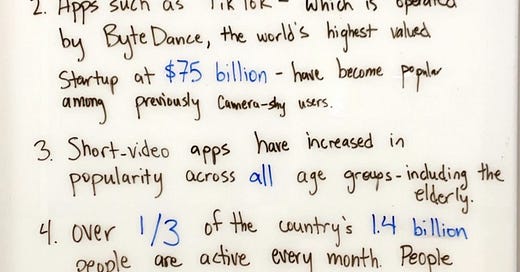 2. Apps such as TikTok - which is operated
by ByteDance, the world's highest valued
startup at $75 billion - have become popular
among previously camera-shy users.
3. Short-video apps have increased in
popularity across all age groups - including the
elderly.
4. Over 1/3 of the country's 1.4 billion
people are active every month. People